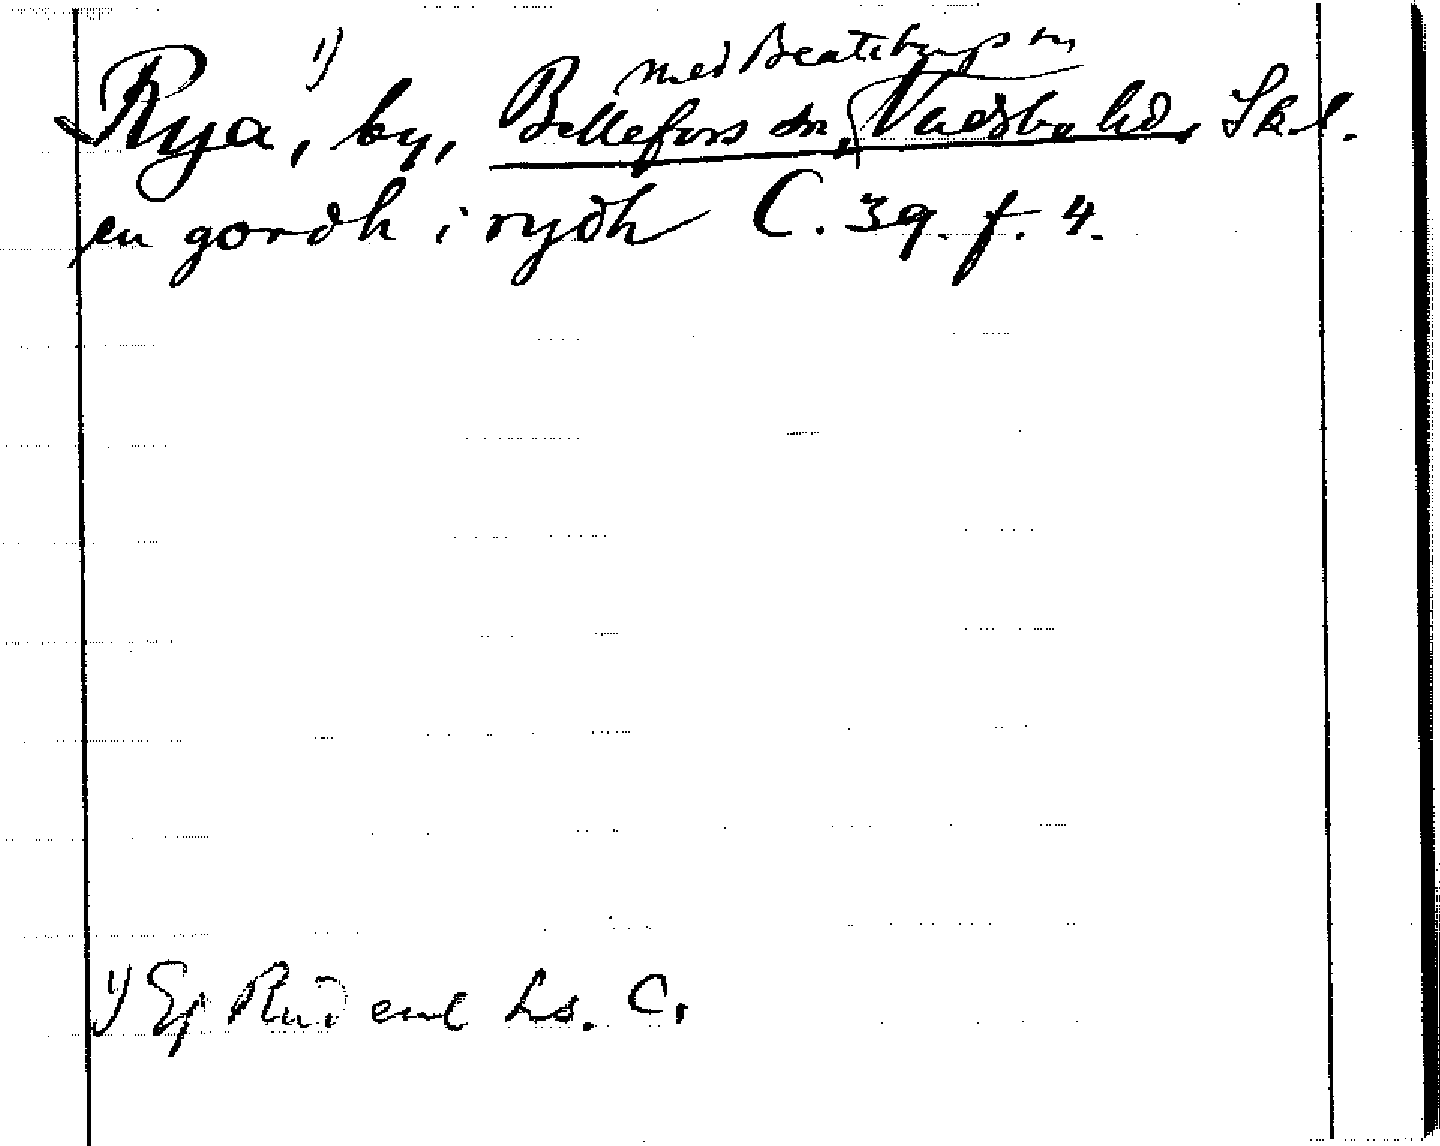 med Beateberg sn
Rya, 1) by, Bellefors sn, Vadsbo hd, Sk. l.
en gordh i rydh C. 39. f. 4.
1) Ej Rud enl Ls. C.